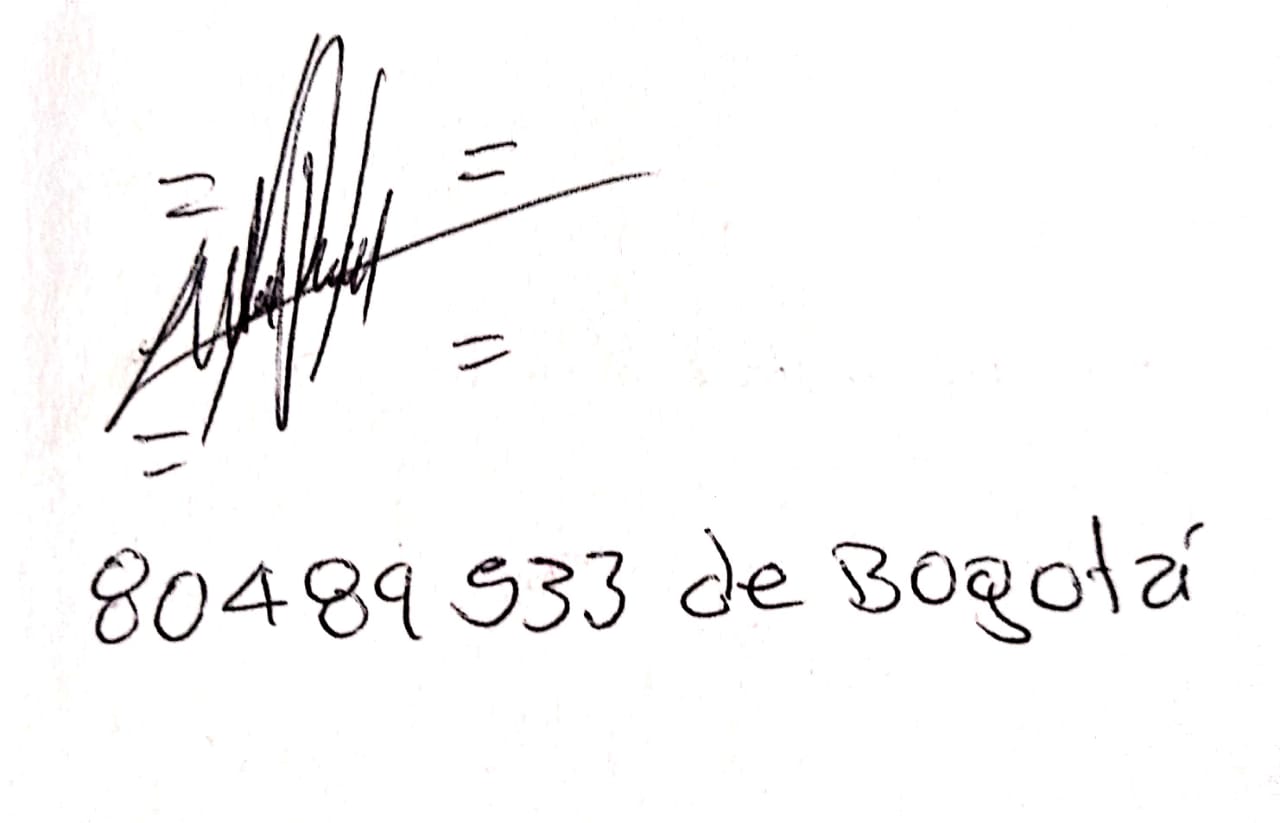 80489533 de Bogotá